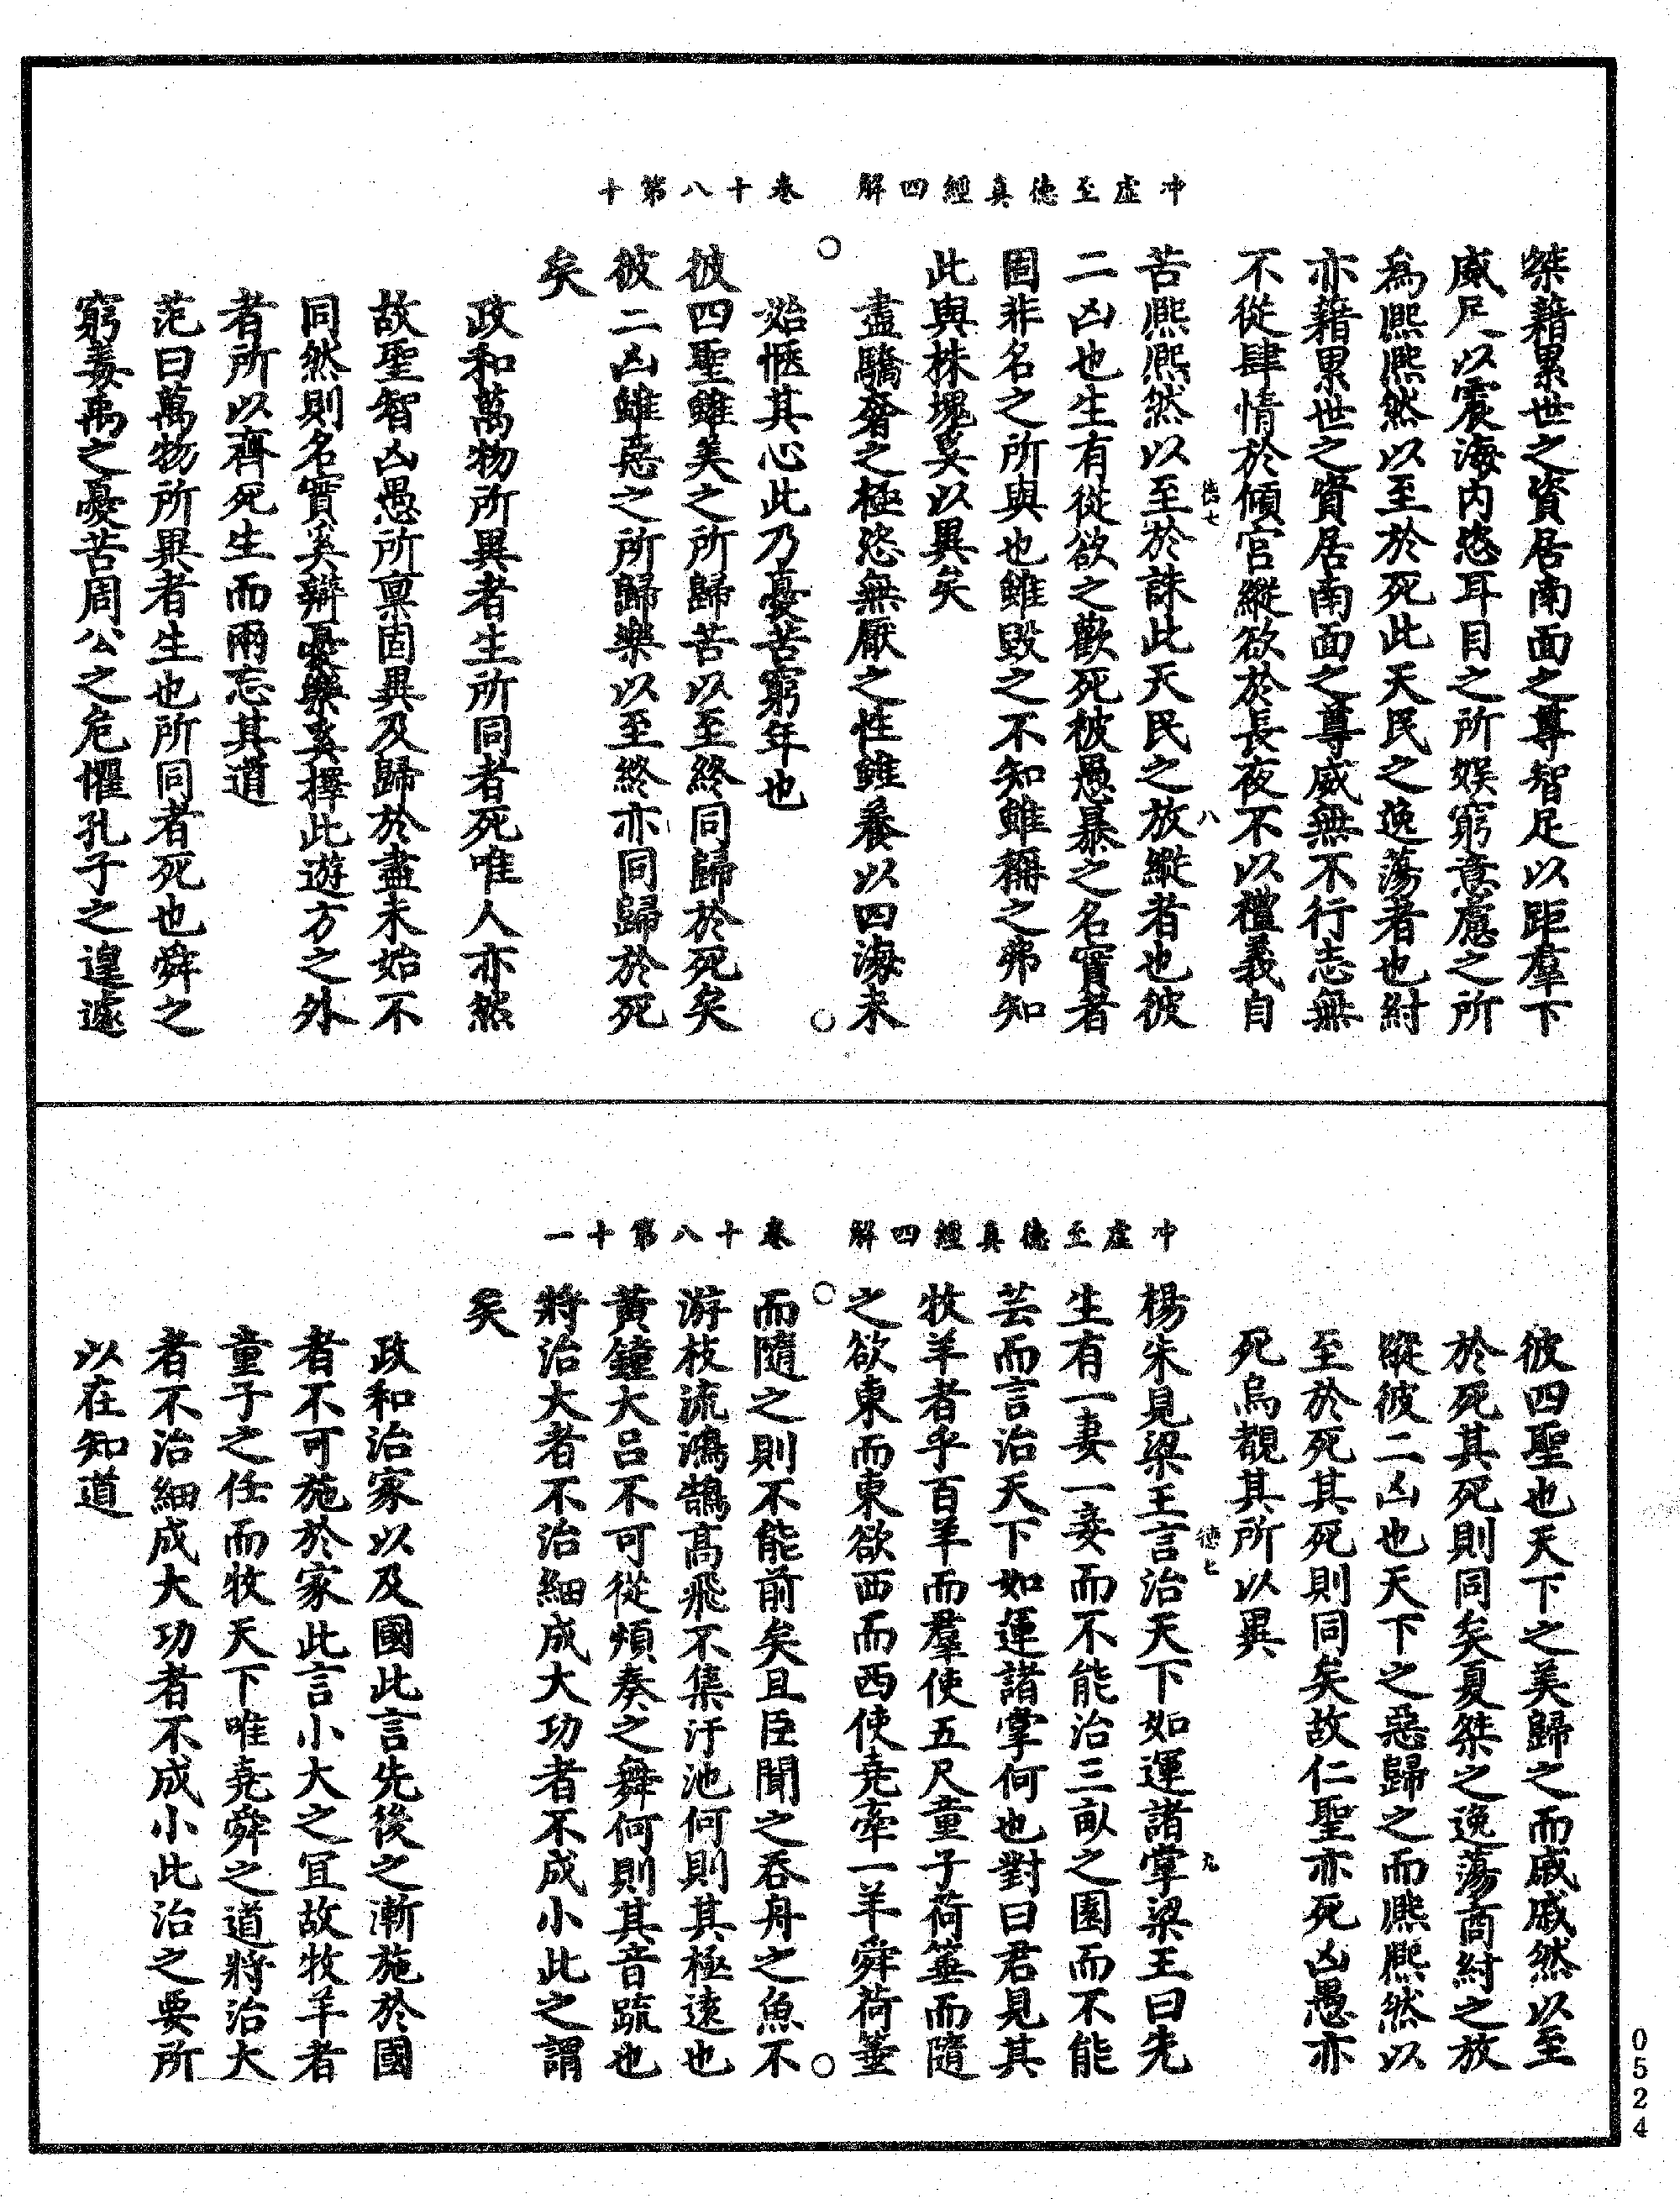 冲虛至德真經四解 卷十八第十
桀藉累世之資居南面之尊智足以距羣下
威足以震海內恣耳目之所娛窮意慮之所
為熈熈然以至於死此天民之逸蕩者也紂
亦藉累世之資居南面之尊威無不行志無
不從肆情於傾宮縱欲於長夜不以禮義自
德七 八
苦熈熈然以至於誅此天民之放縱者也彼
二凶也生有從欲之歡死被愚暴之名實者
固非名之所與也雖毀之不知雖稱之弗知
此與株塊奚以異矣
盡驕奢之極恣無厭之性雖養以四海未
始愜其心此乃憂苦窮年也
彼四聖雖美之所歸苦以至終同歸於死矣
彼二凶雖惡之所歸樂以至終亦同歸於死
矣
政和萬物所異者生所同者死唯人亦然
故聖智凶愚所禀固異及歸於盡未始不
同然則名實奚辯憂樂奚擇此遊方之外
者所以齊死生而兩忘其道
范曰萬物所異者生也所同者死也舜之
窮毒禹之憂苦周公之危懼孔子之遑遽
冲虛至德真經四解 卷十八第十一
彼四聖也天下之美歸之而戚戚然以至
於死其死則同矣夏桀之逸蕩商紂之放
蹤彼二凶也天下之惡歸之而熈熈然以
至於死其死則同矣故仁聖亦死凶愚亦
死烏覩其所以異
德七 九
楊朱見梁王言治天下如運諸掌梁王曰先
生有一妻一妾而不能治三畝之園而不能
芸而言治天下如運諸掌何也對曰君見其
牧羊者乎百羊而羣使五尺童子荷箠而隨
之欲東而東欲西而西使堯牽一羊舜荷箠
而隨之則不能前矣且臣聞之吞舟之魚不
游枝流鴻鵠高飛不集汙池何則其極遠也
黃鐘大呂不可從煩奏之舞何則其音疏也
將治大者不治細成大功者不成小此之謂
矣
政和治家以及國此言先後之漸施於國
者不可施於家此言小大之宜故牧羊者
童子之任而牧天下唯堯舜之道將治大
者不治細成大功者不成小此治之要所
以在知道
0524